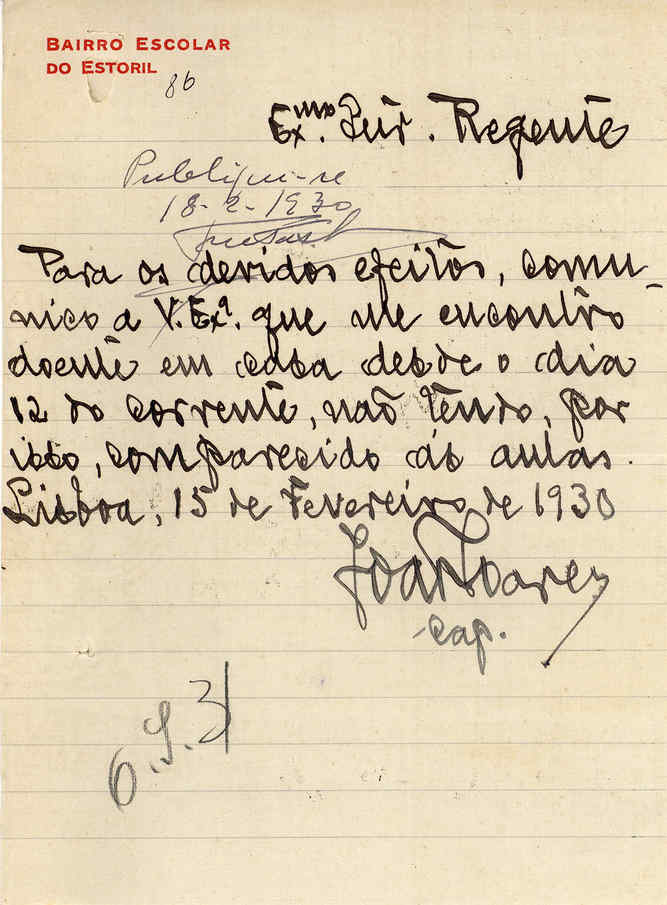 BAIRRO ESCOLAR
DO ESTORIL
86
Exmo. Snr. Regente
Publique-se
18-2-1930
Para os devidos efeitos, comu-
nico a V. Exª. que me encontro
doente em casa desde o dia
12 do corrente, não tendo, por
isso, comparecido ás aulas.
Lisboa, 15 de Fevereiro de 1930
João Soares
cap.
O.S. 31